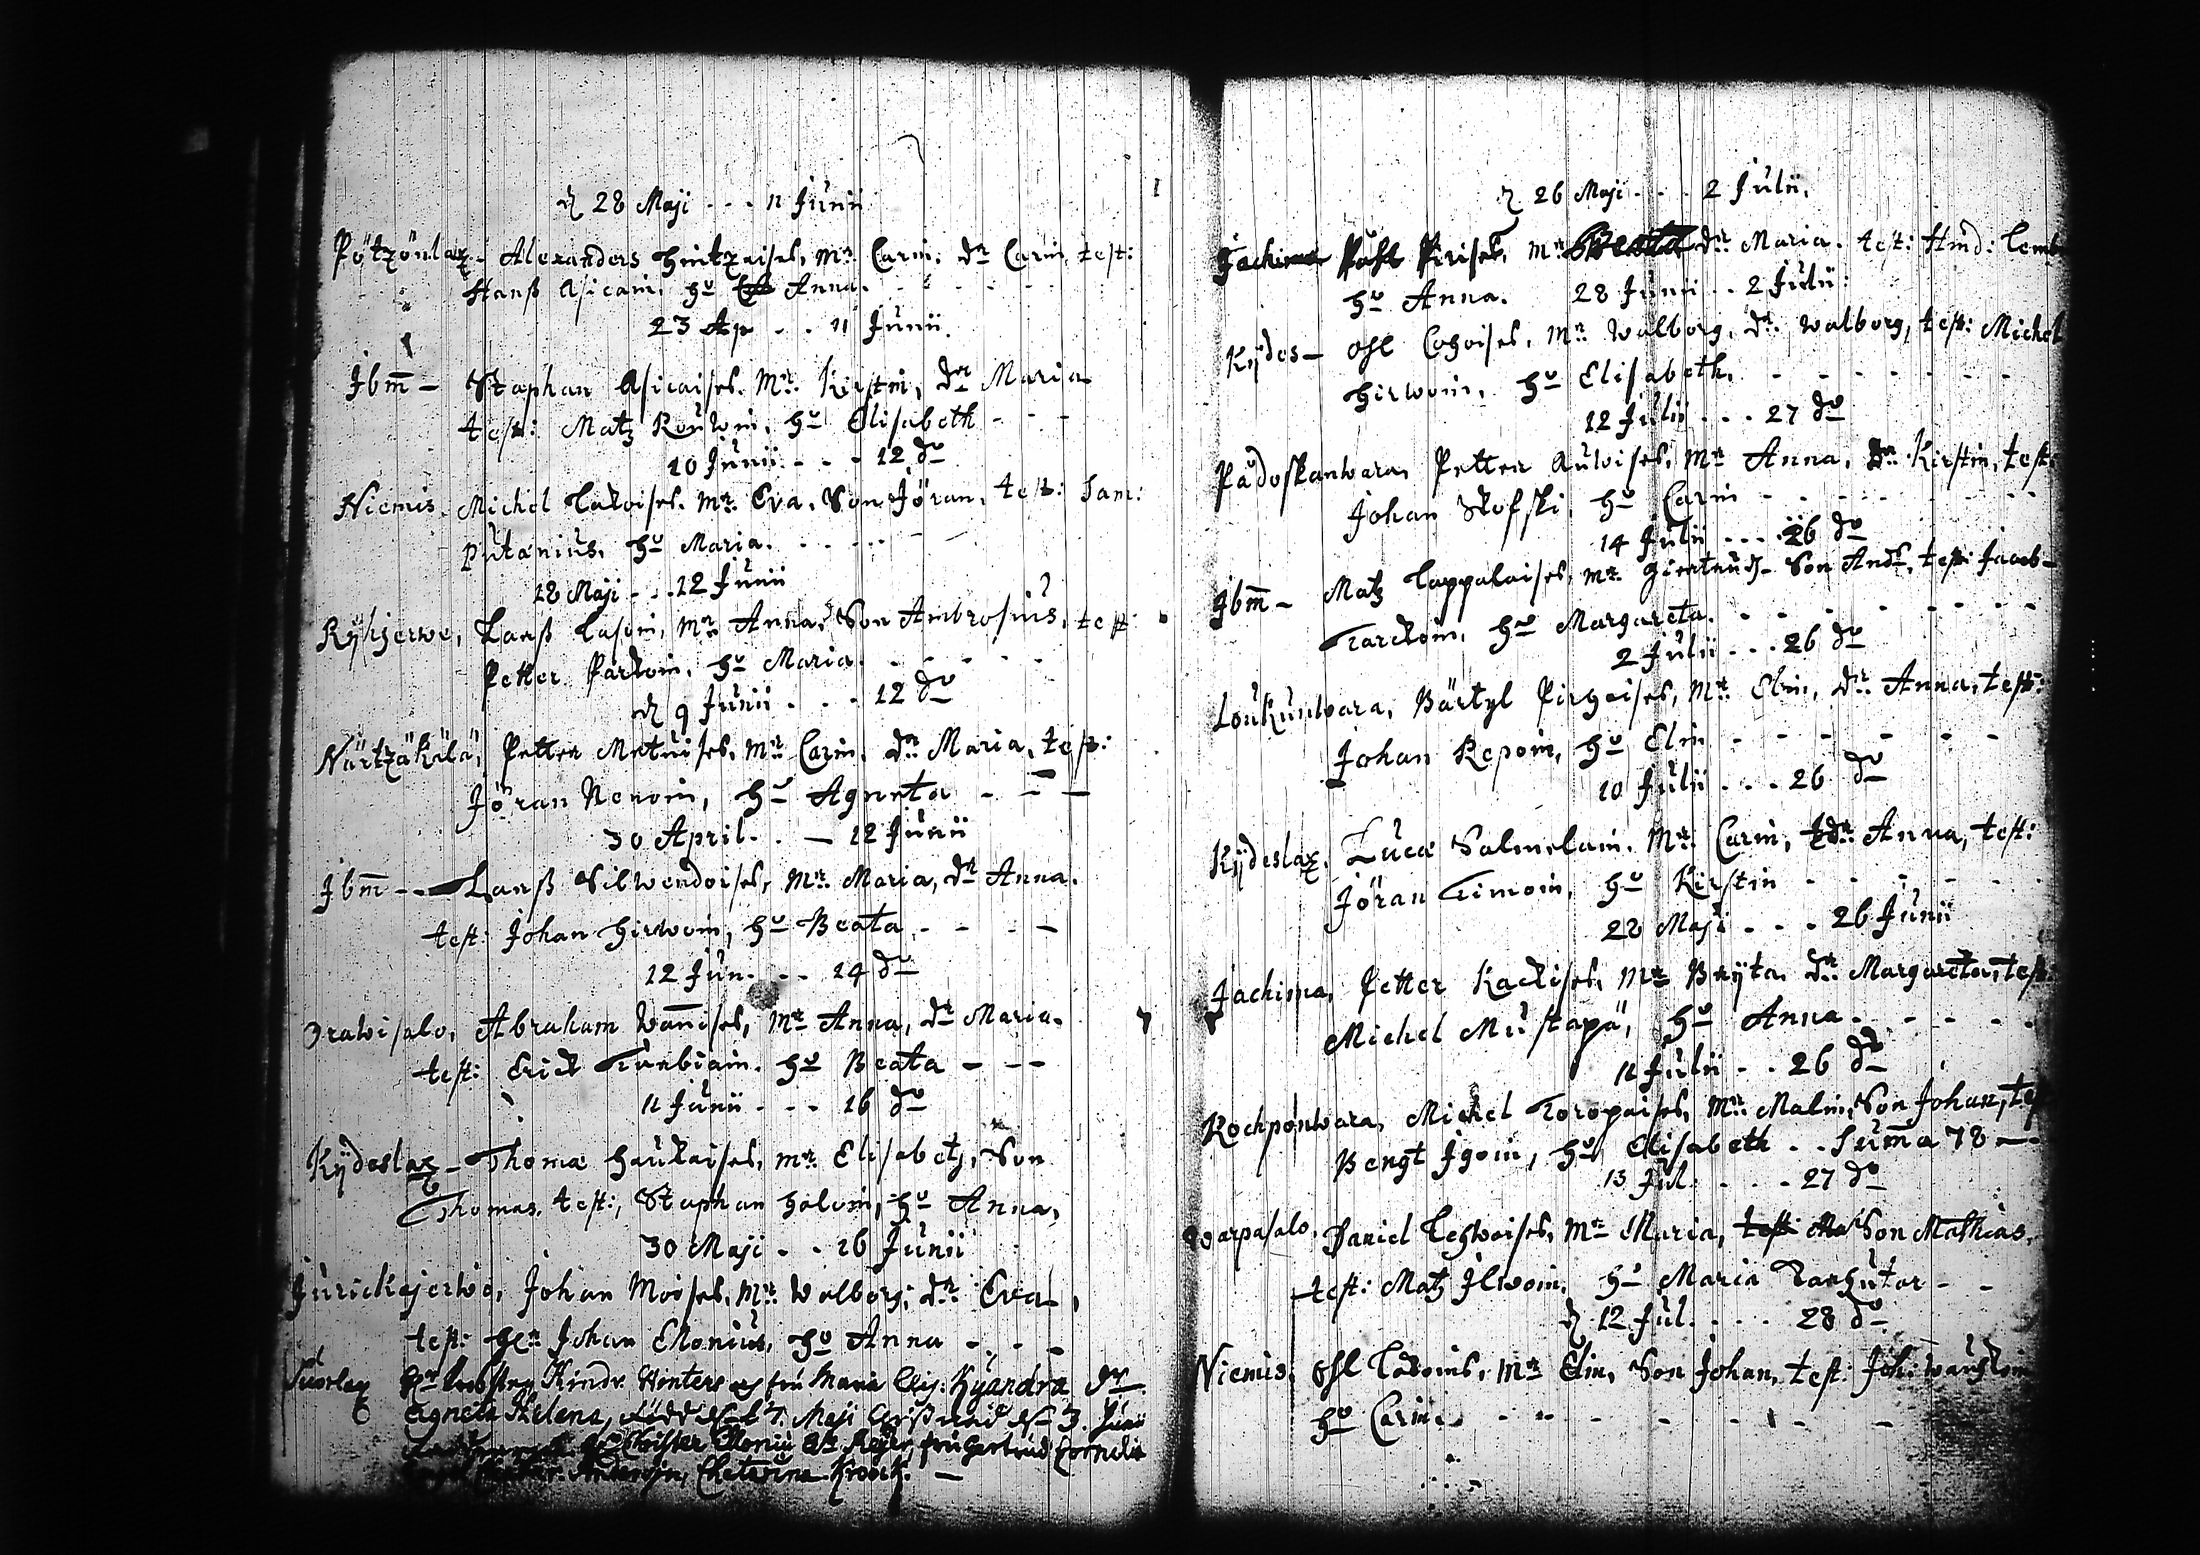 d 28 Maji - - - 11 Junii
Pötzönlax - Alexanders Hintzaises, Mr. Carin, Dr Carin, test:
Hanß Asicain, Hu Anna. - - - - -
23 Ap - - 11 Junii.
Jbm̄ - Staphan Asicaises. Mr. Kirstin, Dr Maria
test: Matz Rouwin, Hu Elisabeth - - -
10 Junii - - - 12 do
Niemis. Michel Takoises. Mr. Eva. Son Jöran. test: Sam:
Putanius, Hu Maria. - - - - -
18 Maji - - . 12 Junii
Ryhjerwe, Lanß Lasoin, Mr. Anna, Son Ambrosius, test:
Petter Parkoin, Hu Maria. - - - - -
d 9 Junii - - - 12 do
Närtzäkälä, Petter Metuises, Mr. Carin. Dr Maria, test:
Jöran Nenoin, Hu Agneta - - -
30 April. . - 12 Junii
Jbm̄ - - Lanß Silwendoises, Mr. Maria, Dr Anna.
test: Johan Hirwoin, Hu Beata. - - - -
12 Jun. - - 14 do
Orawisalo, Abraham Wänises, Mr Anna, Dr Maria.
test: Erick Turbiain. Hu Beata - - -
11 Junii - - - 16 do
Kÿdeslax - Thoma Haukaises, Mr Elisabetz, Son
Thomas, test:, Staphan Holoin, Hu Anna,
30 Maji - - 16 Junii
Jurickajerwi, Johan Moises, Mr. Walborg, Dr. Eva,
test: Her Johan Elonius, Hu Anna - . - -
Suorlax Kindr. Winters och fru Maria Kyandra Dr
Agneta Helena, född d 7. Maji 3. Junii
Christer Elonii Reyer, fru Gertrud Cornelii
Andersson, Chatarina Krook. -
d 26 Maji - - . 2 Julii.
Jachima Påhl Pirises, Mr Dr. Maria. test: Hind: Lemb
Hu Anna. 28 Junii - . 2 Julii:
Kÿdes - Ohl Cohoises, Mr. Walborg, Dr. Walborg, test: Michel
Hirwoin, Hu Elisabeth, - - - - - -
12 Julii - - . 27 do
Pådoskanwara, Petter Auwoises, Mr Anna, Dr. Kirstin, test:
Johan Skofski, Hu Carin - - - - - -
14 Julii - - - 26 do
Jbm̄ - Matz Tappalaises, Mr. Giertrudh - Son Ands, test: Jacob -
Tarckoin, Hu Margareta. - - - - - - -
2 Julii - - - 26 do
Loukunwara, Bärtyl Pirhoises, Mr. Elin, Dr. Anna, test:
Johan Repoin, Hu Elin - - - - - -
10 Julii - - . 26 do
Kÿdeslax, Luca Salmelain. Mr. Carin, Dr. Anna, test:
Jöran Timoin, Hu Kirstin - - - - -
22 Maji - - - 26 Junii
Jachima, Petter Kackises, Mr Bryta. Dr. Margareta, test.
Michel Mustapä, Hu Anna - - - - -
11 Julii - - 26 do
Kochponwara, Michel Toropaises, Mr. Malin, Son Johan, test
Bengt Jgoin, Hu Elisabeth - - Sum̄a 78 -
13 Jul. - - - 27 do
Warpasalo, Daniel Lehwoises, Mr Maria, Son Mathias.
test: Matz Jlwoin, Hu Maria Tanhutar - -
d 12 Jul. - - - 28 do
Niemis. Ohl Takoins, Mr Elin, Son Johan, test: Joh: Wauhkoin
Hu Carin. - - - - - - -